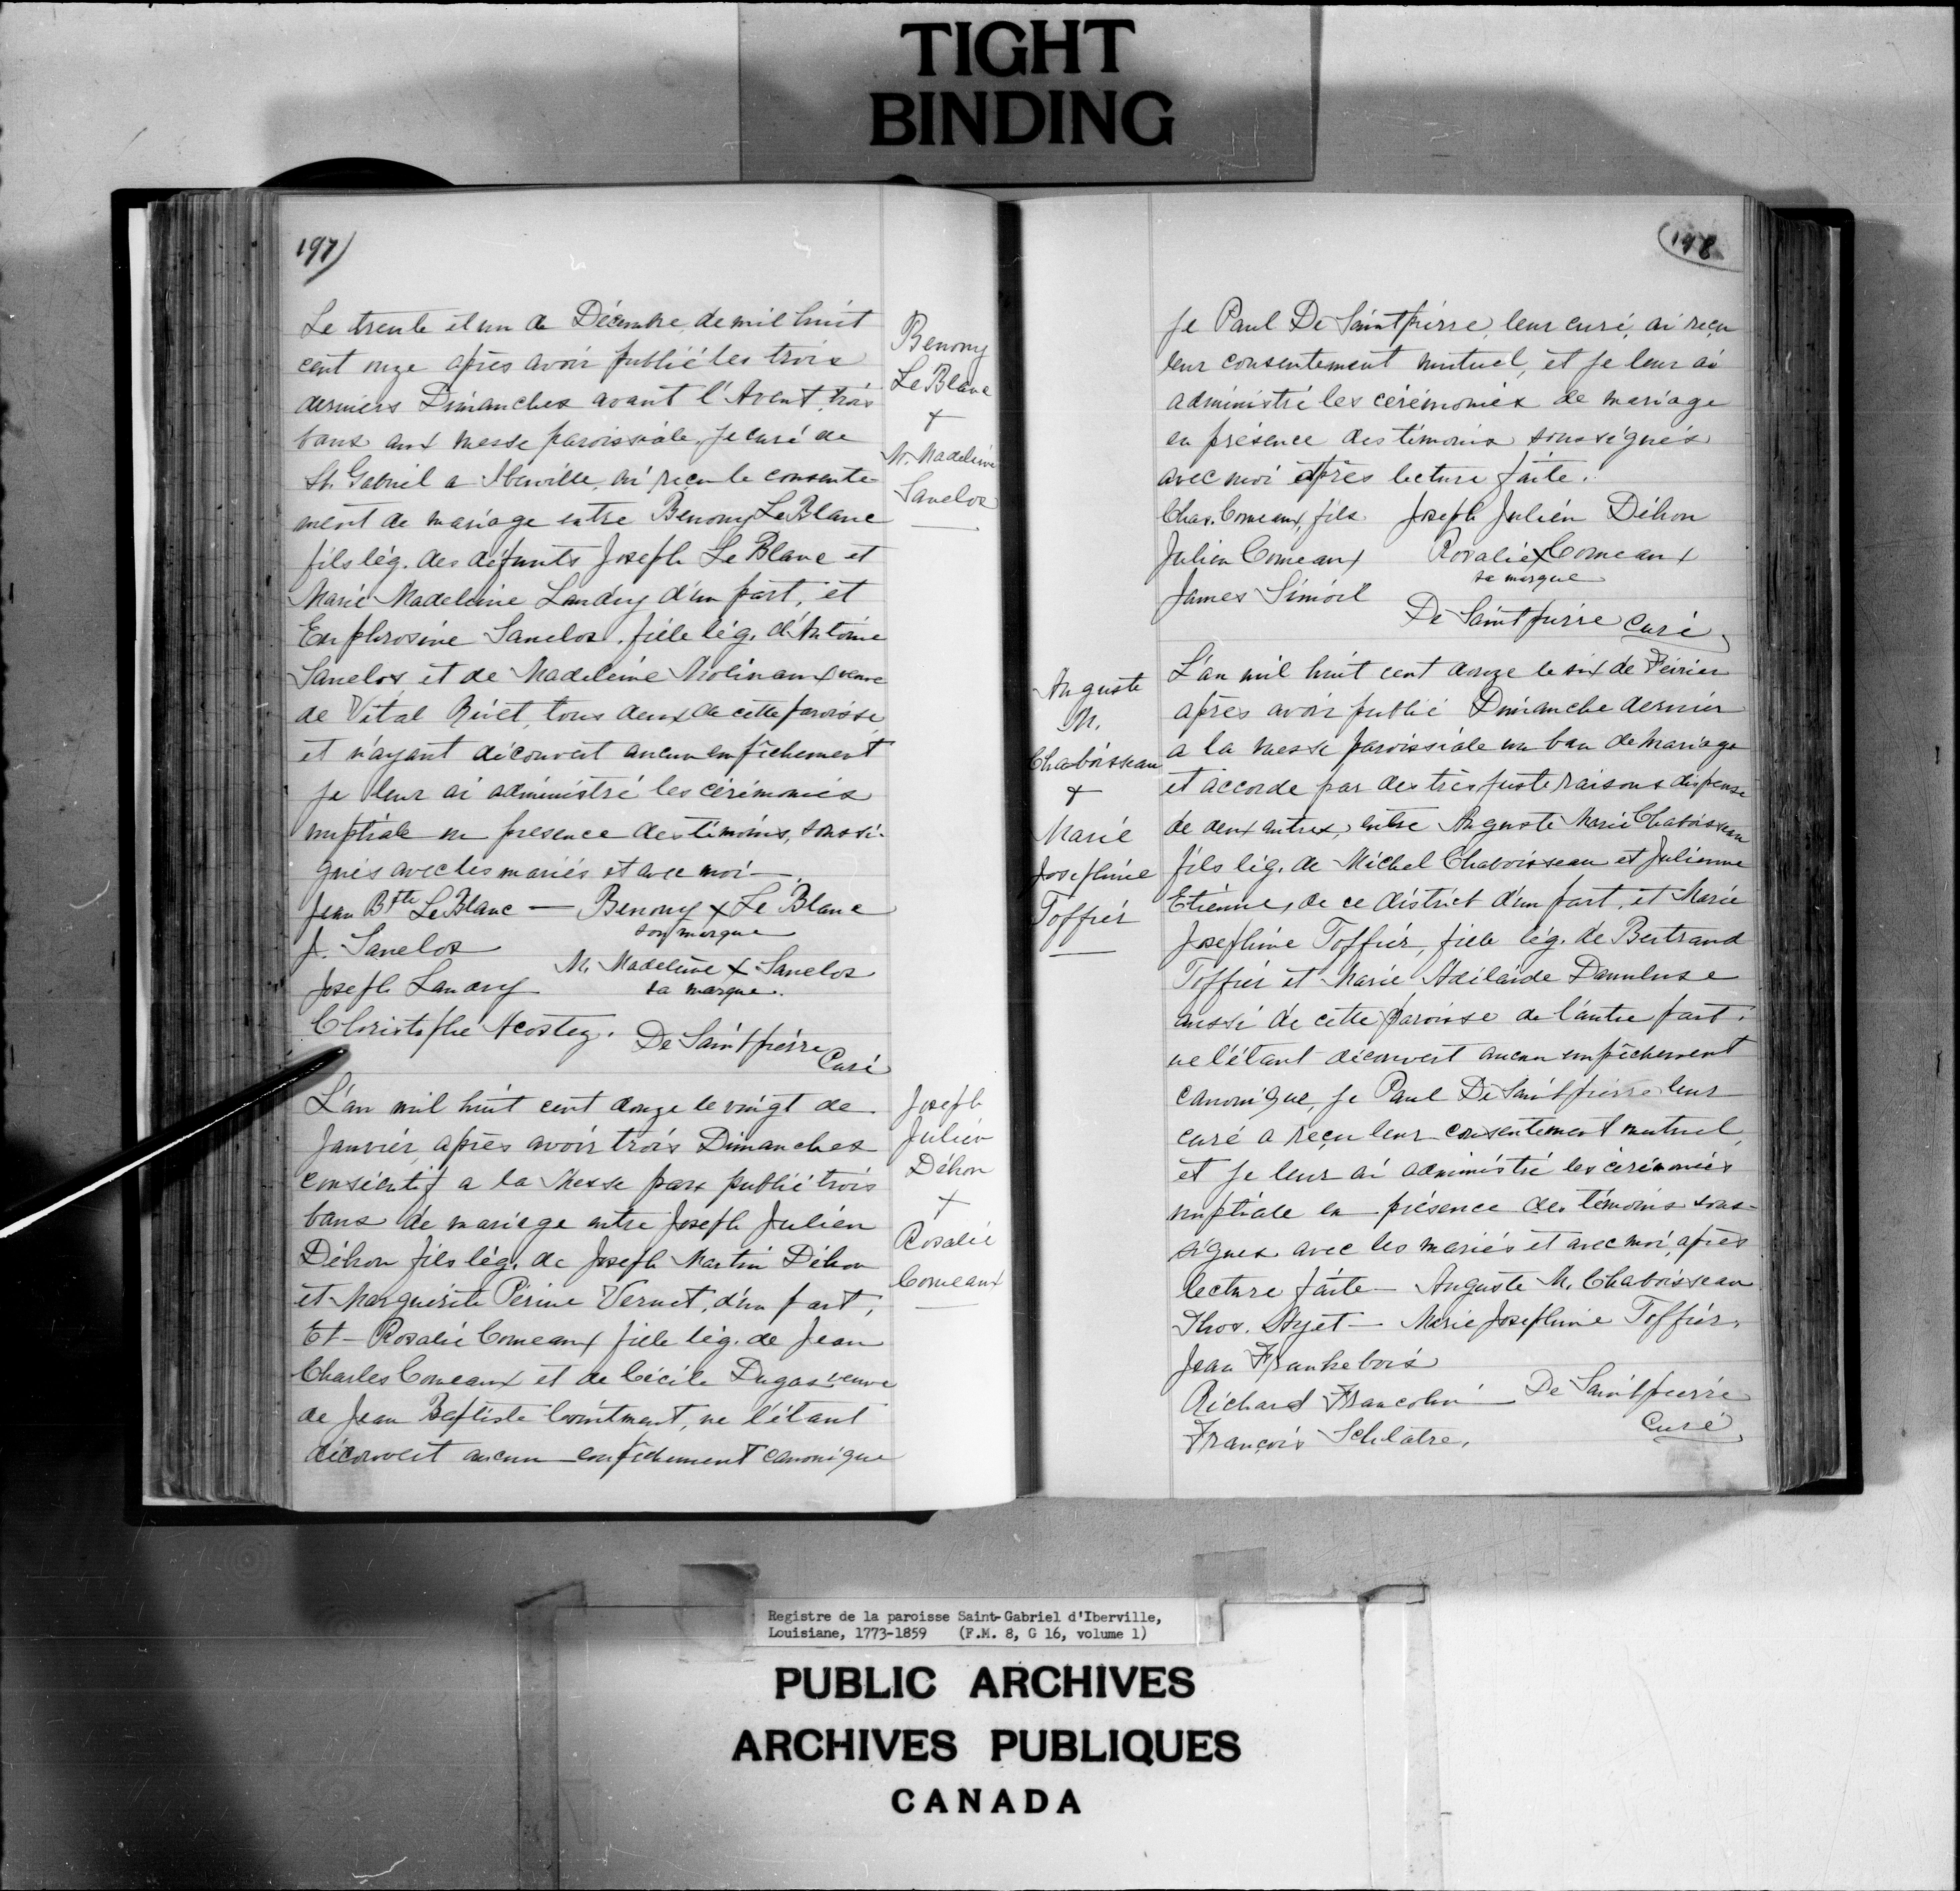 TIGHT
BINDING
197)
Le trente et un de Décembre, de mil huit
cent onze après avoir publié les trois
derniers Dimanches avant l'Avent, trois
bans aux messe paroissiale, je curé de
St. Gabriel a Iberville, ai reçu le consente-
ment de mariage entre Benony LeBlanc
fils lég. des défunts Joseph Le Blanc et
Marie Madeleine Landry d'un part, et
Euphrosine Sanelos. fille lég. d'Antoine
Sanelos et de Madeleine Molinaux veuve
de Vital Rivet, tous deux de cette paroisse,
et n'ayant découvert aucun empêchement
je leur ai administré les cérémonies
nuptiale en presence des témoins, soussi-
gnés avec les mariés et avec moi —
Jean Bte LeBlanc — Benony x Le Blanc
son marque
J. Sanelos
M. Madeleine x Sanelos
Joseph Landry
sa marque.
Christophe Acostez. De Saintpierre
Curé
Benony
LeBlanc
+
M. Madeleine
Sanelos
L'an mil huit cent douze le vingt de
Janvier, après avoir trois Dimanches
consécutif a la Messe parx publié trois
bans de mariage entre Joseph Julien
Déhon fils lég. de Joseph Martin Déhon
et Marguerite Périne Vernet, d'un part,
Et — Rosalie Comeaux fille lég. de Jean
Charles Comeaux et de Cécile Dugas veuve
de Jean Baptiste, ne l'étant
découvert aucun empêchement canonique
Joseph
Julien
Déhon
+
Rosalie
Comeaux
(198
Je Paul De Saintpierre, leur curé, ai reçu
leur consentement mutuel, et je leur ai
administré les cérémonies de mariage
en présence des témoins soussignés
avec moi après lecture faite.
Chas. Comeaux, fils Joseph Julien Déhon
Julien Comeaux Rosalie x Comeaux
sa marque
James
De Saintpierre curé
L'an mil huit cent douze le six de Février
après avoir publié Dimanche dernier
a la messe paroissiale un ban de mariage
et accorde par des très juste raisons dispense
de deux autres, entre Auguste Marie Chaboisseau
fils lég. de Michel Chaboisseau et Julienne
Etienne, de ce district d'un part, et Marie
Josephine Toffier, fille lég. de Bertrand
Toffier et Marie Adelaide
aussi de cette paroisse de l'autre part.
ne l'étant découvert aucun empêchement
canonique, je Paul De Saintpierre leur
curé a reçu leur consentement mutuel,
et je leur ai administré les cérémonies
nuptiale en présence des témoins sous-
signes avec les mariés et avec moi, après
lecture faite — Auguste M. Chaboisseau
Thos. Hyet — Marie Josephine Toffier,
Jean Frankebois
Richard Francolin — De Saintpierre
Curé,
François Schlatre.
Auguste
M.
Chaboisseau
+
Marie
Josephine
Toffier
Registre de la paroisse Saint-Gabriel d'Iberville,
Louisiane, 1773-1859 (F.M. 8, G 16, volume 1)
PUBLIC ARCHIVES
ARCHIVES PUBLIQUES
CANADA